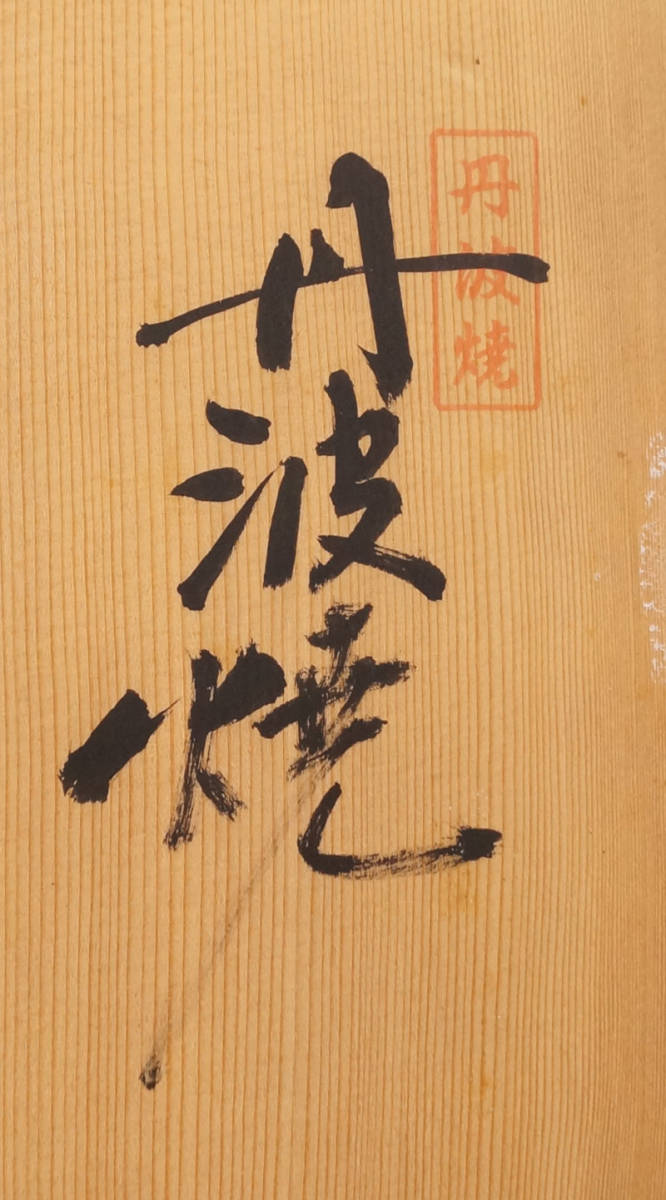 丹波焼
丹波焼